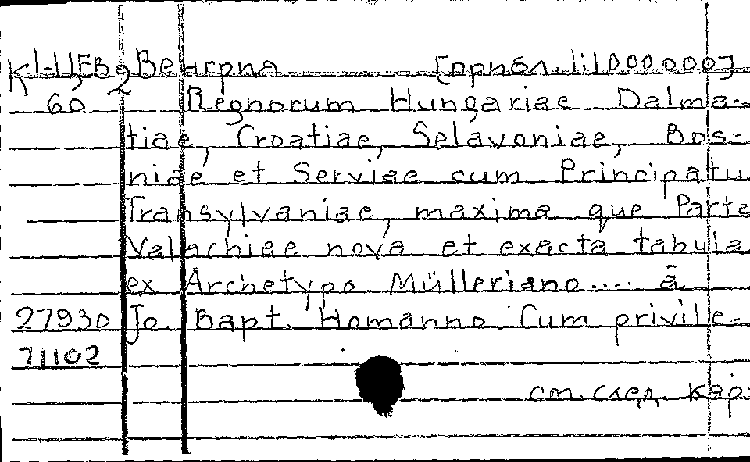 К 1-11/Ев 2 Венгрия [ориг. 1:1000000]
60 Regnorum Hungariae Dalma-
tiae, Croatiae, Sclavoniae, Bos-
niae et Serviae cum Principatu
Transylvaniae, maxima que Parte
Valachiae nova et exacta tabula
ex Archetypo Mülleriano.... ā
27930 Jo. Bapt. Homanno Cum priville-
71102
см. след. кар.